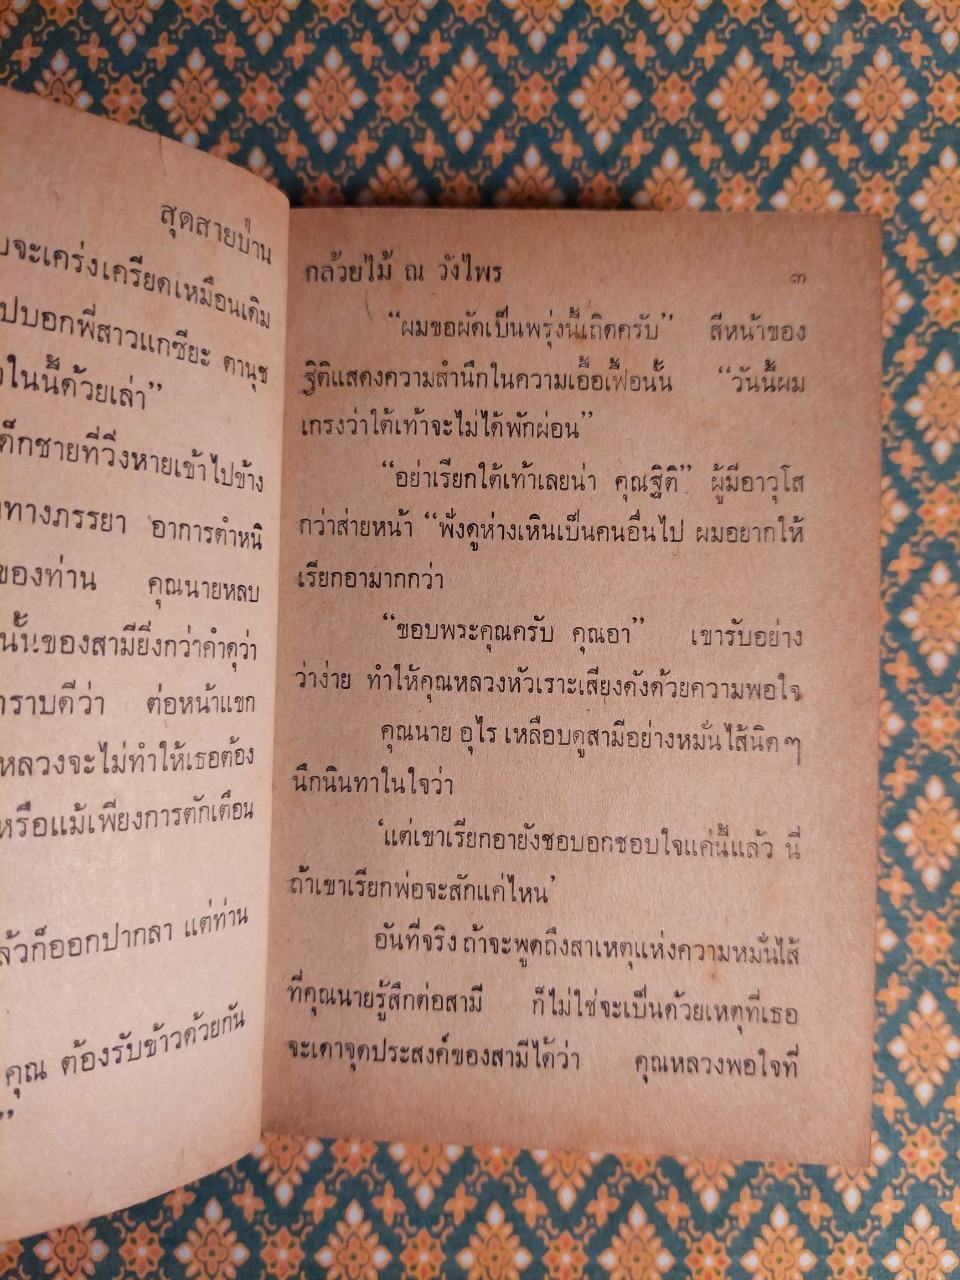 สุดสายป่าน
จะเคร่งเครียดเหมือนเดิม
ปบอกพี่สาวแกซียะ ดานุช
ในนี้ด้วยเล่า”
ด็กชายที่วิ่งหายเข้าไปข้าง
ทางภรรยา อาการตำหนิ
ของท่าน คุณนายหลบ
นั้นของสามียิ่งกว่าคำดุว่า
ทราบดีว่า ต่อหน้าแขก
หลวงจะไม่ทำให้เธอต้อง
หรือแม้เพียงการตักเตือน
ล้วก็ออกปากลา แต่ท่าน
คุณ ต้องรับข้าวด้วยกัน
”
กล้วยไม้ ณ วังไพร ๓
“ผมขอผัดเป็นพรุ่งนี้เถิดครับ” สีหน้าของ
ฐิติแสดงความสำนึกในความเอื้อเฟื้อนั้น “วันนี้ผม
เกรงว่าใต้เท้าจะไม่ได้พักผ่อน”
“อย่าเรียกใต้เท้าเลยน่า คุณฐิติ” ผู้มีอาวุโส
กว่าส่ายหน้า “ฟังดูห่างเหินเป็นคนอื่นไป ผมอยากให้
เรียกอามากกว่า
“ขอบพระคุณครับ คุณอา” เขารับอย่าง
ว่าง่าย ทำให้คุณหลวงหัวเราะเสียงดังด้วยความพอใจ
คุณนาย อุไร เหลือบดูสามีอย่างหมั่นไส้นิดๆ
นึกนินทาในใจว่า
‘แต่เขาเรียกอายังชอบอกชอบใจแค่นี้แล้ว นี่
ถ้าเขาเรียกพ่อจะสักแค่ไหน’
อันที่จริง ถ้าจะพูดถึงสาเหตุแห่งความหมั่นไส้
ที่คุณนายรู้สึกต่อสามี ก็ไม่ใช่จะเป็นด้วยเหตุที่เธอ
จะเดาจุดประสงค์ของสามีได้ว่า คุณหลวงพอใจที่